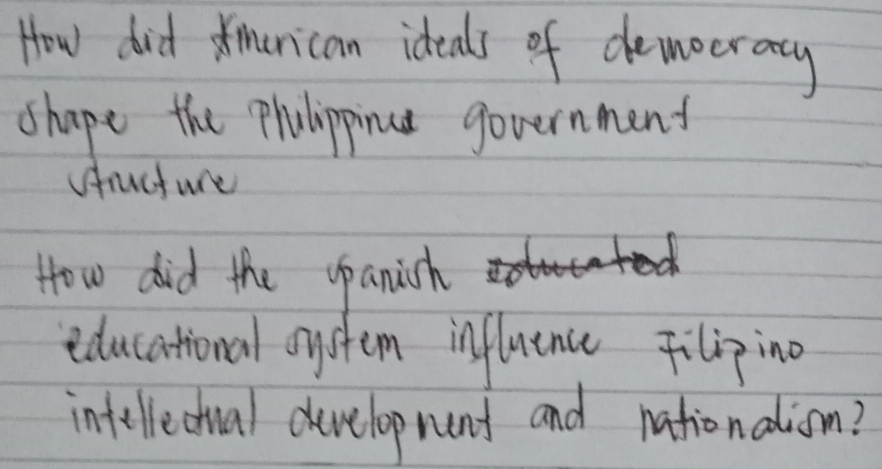 How did American ideals of democracy
shape the Philippines government
structure
How did the Spanish educated
educational system influence Filipino
intellectual development and nationalism?